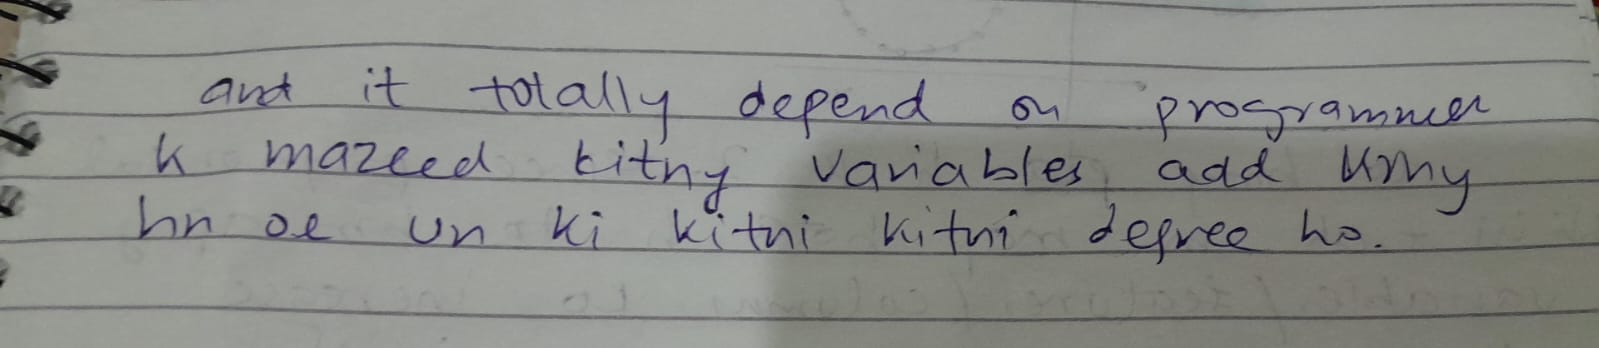 and it totally depend on programmer
k mazeed kitny variables add krny
hn oe un ki kitni kitni degree ho.